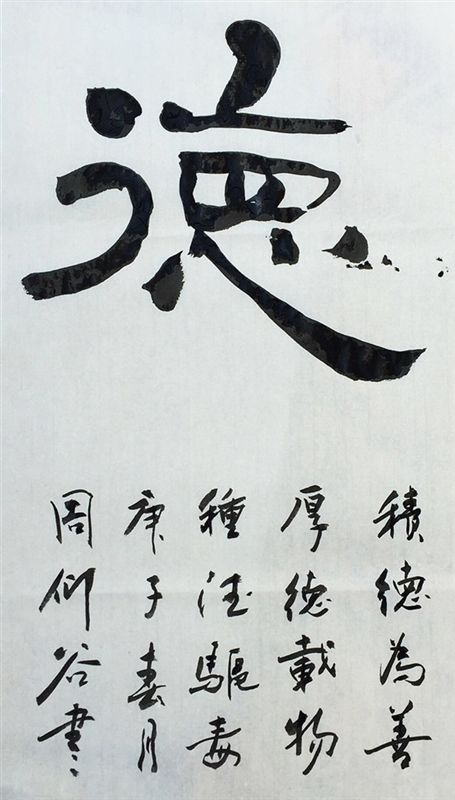 德
積德為善
厚德載物
種德驅毒
庚子春月
周仰谷書